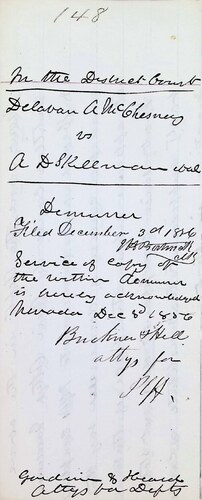 148
In the District Court
Delavan A McChesney
vs
A D Skillman et al
Demurrer
Filed December 3d 1856
Service of copy of
the within demurrer
is hereby acknowledged
Nevada Dec 3d 1856
Buckner & Hill
attys for
Plff.
Goodwin & Heard
Attys for Defts